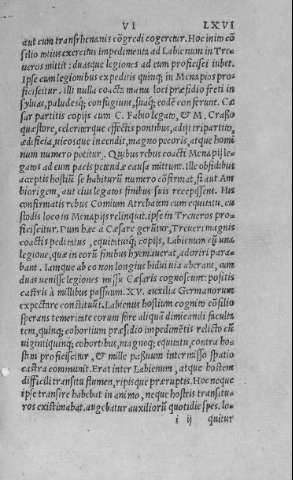 VI LXVI
aut cum transrhenanis cōgredi cogeretur. Hoc inito cō⸗
silio totius exercitus impedimenta ad Labienum in Tre⸗
ueros mittit: duasque legiones ad eum proficisci iubet.
Ipse cum legionibus expeditis quinq; in Menapios pro⸗
ficiscitur. illi nulla coacta manu loci præsidio freti in
syluas, paludesq; confugiunt, suaq; eodē conferunt. Cæ
sar partitis copijs cum C. Fabio legato, & M. Crasso
quæstore, celeriterque effectis pontibus, adijt tripartito,
ædificia, uicosque incendit, magno pecoris, atque homi
num numero potitur. Quibus rebus coacti Menapij le⸗
gatos ad eum pacis petendæ causa mittunt. Ille obsidibus
acceptis hostiū se habiturū numero cōfirmat, si aut Am
biorigem, aut eius legatos finibus suis recepissent. His
confirmatis rebus Comium Atrebatem cum equitatu, cu
stodis loco in Menapijs relinquit. ipse in Treueros pro⸗
ficiscitur. Dum hæc à Cæsare gerūtur, Treueri magnis
coactis peditatus, equitatusq; copijs, Labienum cū una
legione, quæ in eorū finibus hyemauerat, adoriri para⸗
bant. Iamque ab eo non longius bidui uia aberant, cum
duas uenisse legiones missu Cæsaris cognoscunt: positis
castris à millibus passuum .XV. auxilia Germanorum
expectare constituūt. Labienus hostium cognito cōsilio
sperans temeritate eorum fore aliquā dimicandi faculta
tem, quinq; cohortium præsidio impedimētis relicto cū
uigintiquinq; cohortibus, magnoq; equitatu, contra ho⸗
stem proficiscitur, & mille passuum intermisso spatio
castra communit. Erat inter Labienum, atque hostem
difficili transitu flumen, ripisque præruptis. Hoc neque
ipse transire habebat in animo, neque hostis transitu⸗
ros existimabat. augebatur auxiliorū quotidie spes. lo⸗
i ij quitur